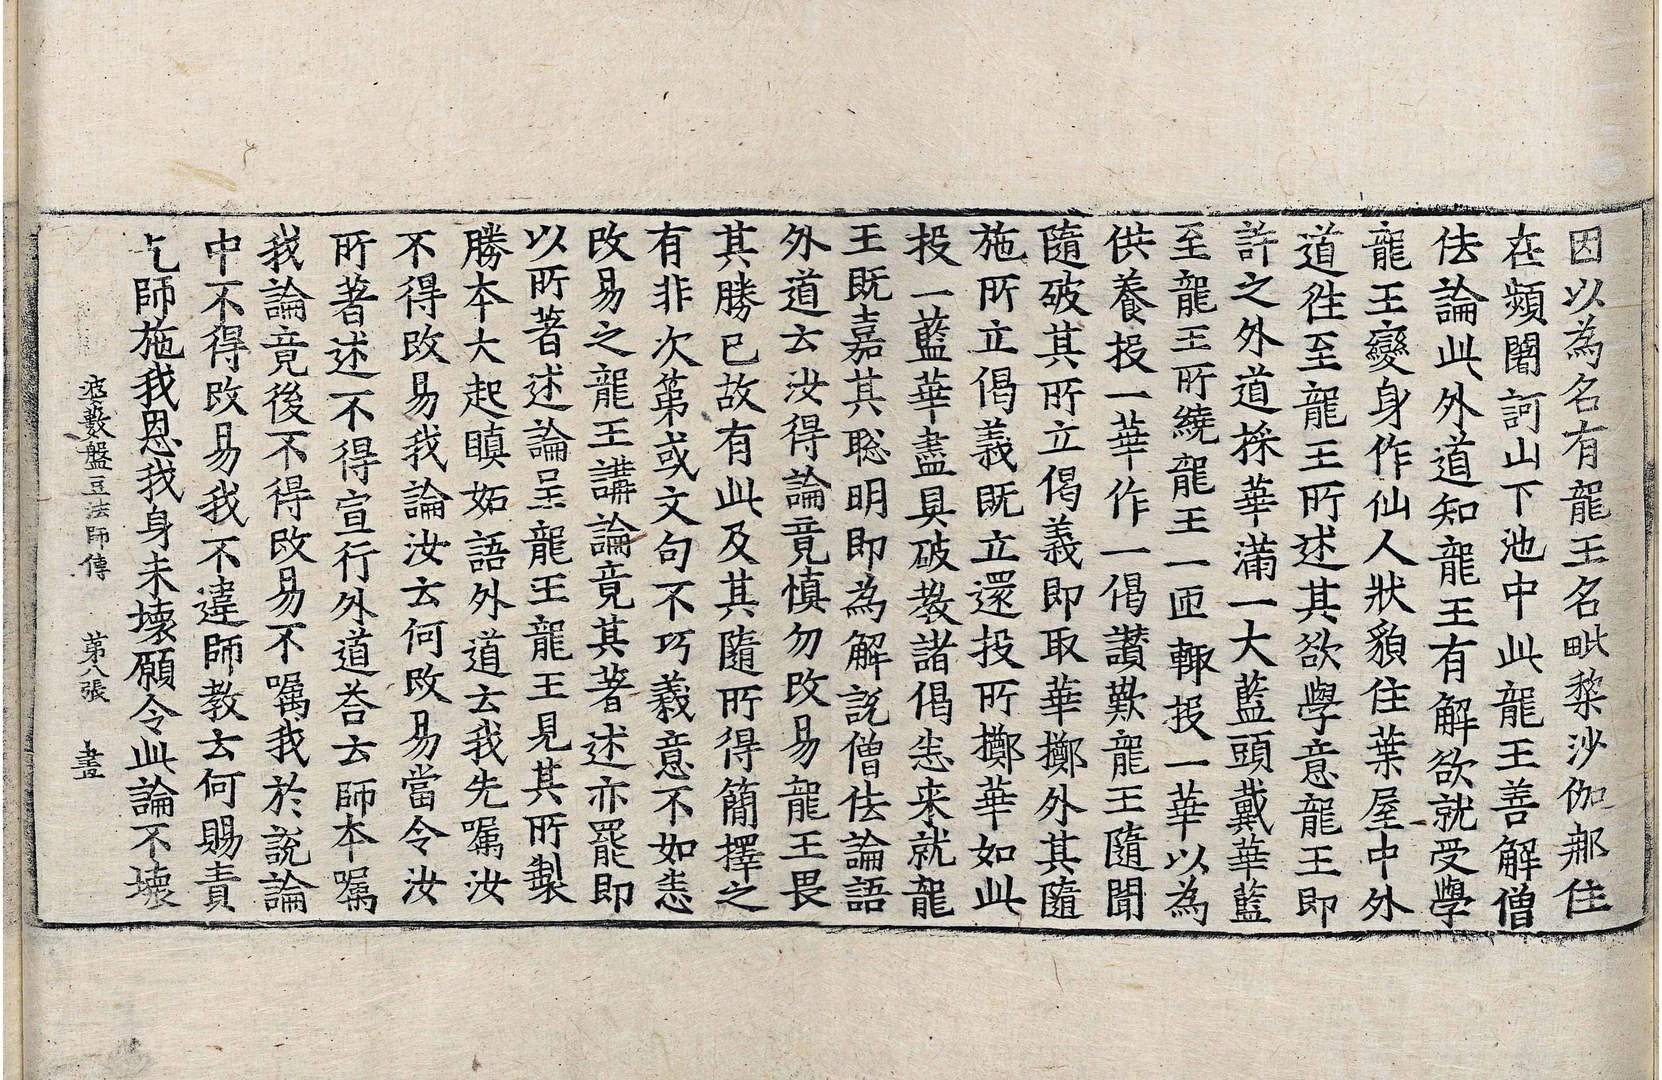 因以為名有龍王名毗梨沙伽那住
在頻闍訶山下池中此龍王善解僧
佉論此外道知龍王有解欲就受學
龍王變身作仙人狀貌住葉屋中外
道往至龍王所述其欲學意龍王即
許之外道採華滿一大藍頭戴華藍
至龍王所繞龍王一匝輙投一華以為
供養投一華作一偈讃歎龍王隨聞
隨破其所立偈義即取華擲外其隨
施所立偈義既立還投所擲華如此
投一藍華盡具破教諸偈悉来就龍
王既嘉其聡明即為解說僧佉論語
外道云汝得論竟慎勿改易龍王畏
其勝已故有此及其隨所得簡擇之
有非次第或文句不巧義意不如悉
改易之龍王講論竟其著述亦罷即
以所著述論呈龍王龍王見其所製
勝本大起瞋妬語外道云我先囑汝
不得改易我論汝云何改易當令汝
所著述不得宣行外道荅云師本囑
我論竟後不得改易不囑我於說論
中不得改易我不違師教云何賜責
乞師施我恩我身未壞願令此論不壞
婆藪盤豆法師傳　第八張　畫